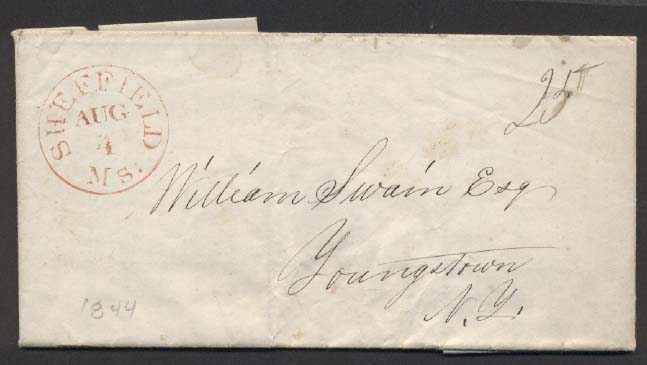 SHEFFIELD
AUG
4
Ms.
25
William Swain Esq
Youngstown
N.Y.
1844